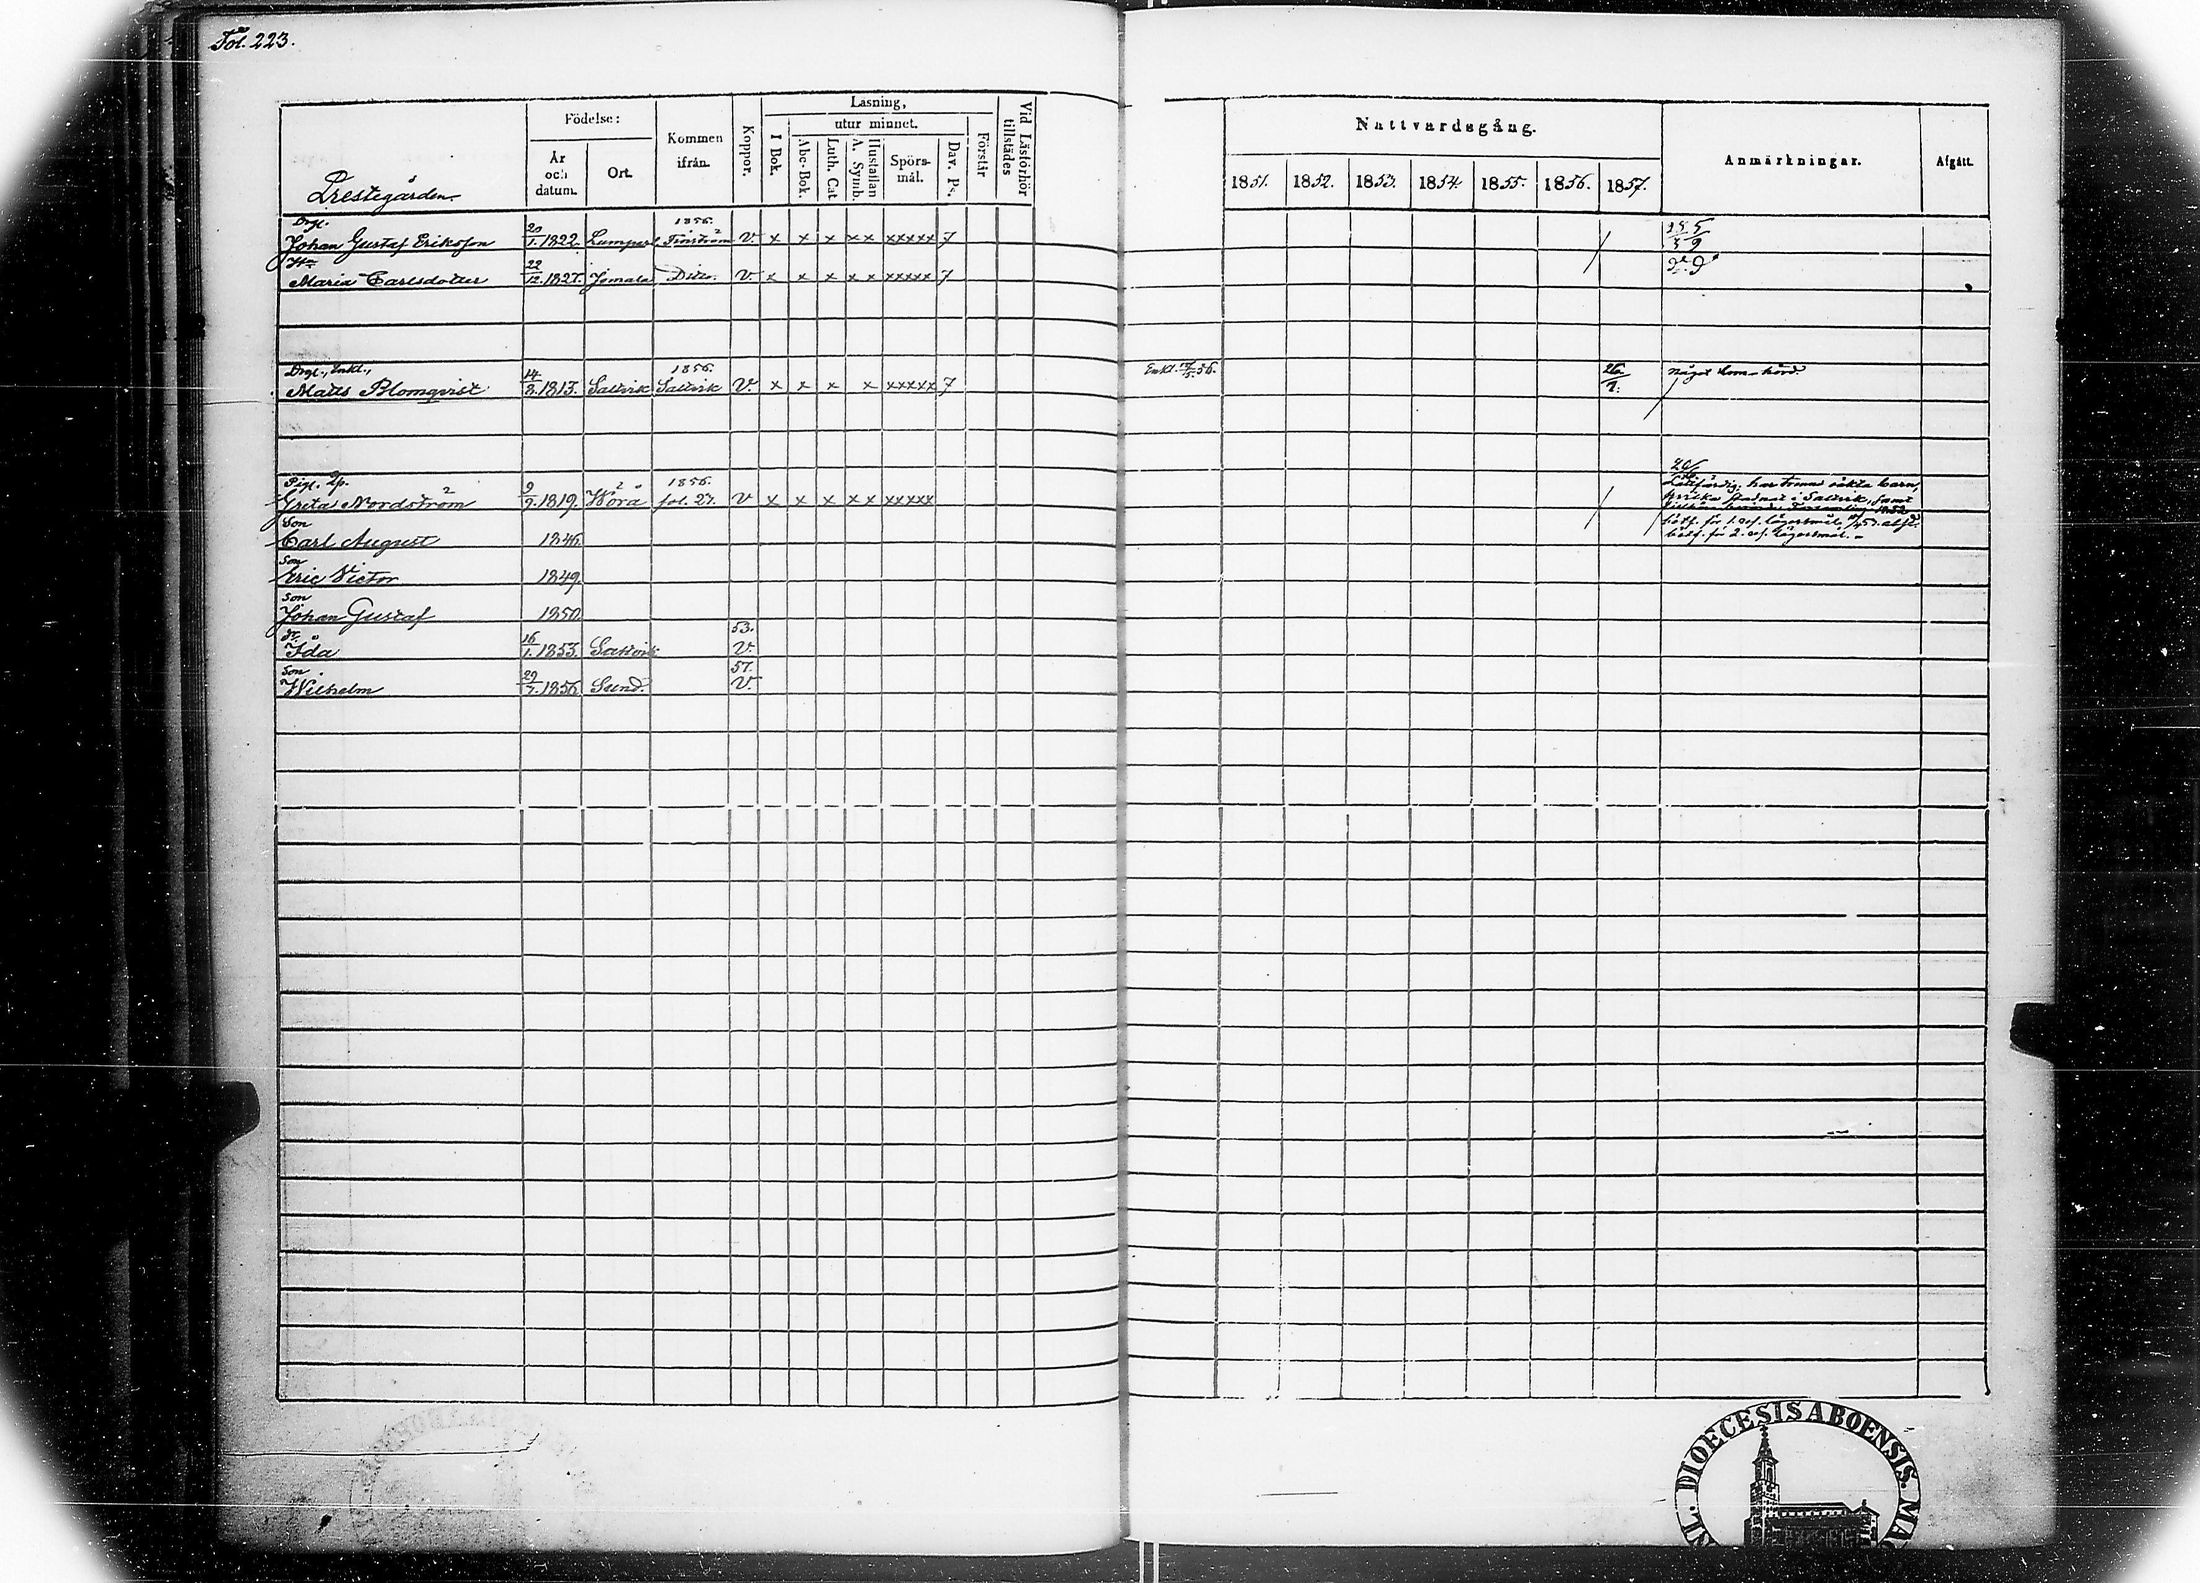 Fol. 223.
Prestegården.
Födelse:
År och datum.
Ort.
Kommen ifrån.
Koppor.
Läsning,
I Bok.
utur minnet.
Abc-Bok.
Luth. Cat
A. Symb.
Hustaflan
Spörs-mål.
Dav. Ps.
Förstår
Vid Läsförhör tillstädes
Nattvardsgång.
1851. 1852. 1853. 1854. 1855. 1856. 1857.
Anmärkningar.
Afgått.
Drgl. 1856.
Johan Gustaf Eriksson 20/1. 1822. Lumparl. V. x x x x x xxxxx 7
Maria Carlsdotter 22/12. 1827. Jomala Ditto. V. x x x x x xxxxx 7
Drgl., Enkl., 1856. Enkl. 56.
Matts Blomqvist 14/2. 1813. Saltvik Saltvik V. x x x x xxxxx 7 26/1. något lom-hörd.
Pig. 1856.
Greta Nordström 9/9. 1819. Wörå fol. 27. V x x x x x xxxxx
Lättfärdig, har trenne oäkta barn,
Saltvik, samt
1852
för 1. lägersmål
för 2. lägersmål.
Son
Carl August 1846.
Son
Eric Victor 1849.
Son
Johan Gustaf 1850.
dr. 53.
Ida 16/1. 1853. Saltvik V.
Son 57.
Wilhelm 29/7. 1856 Sund. V.
DIOECESIS ABOENSIS. MA